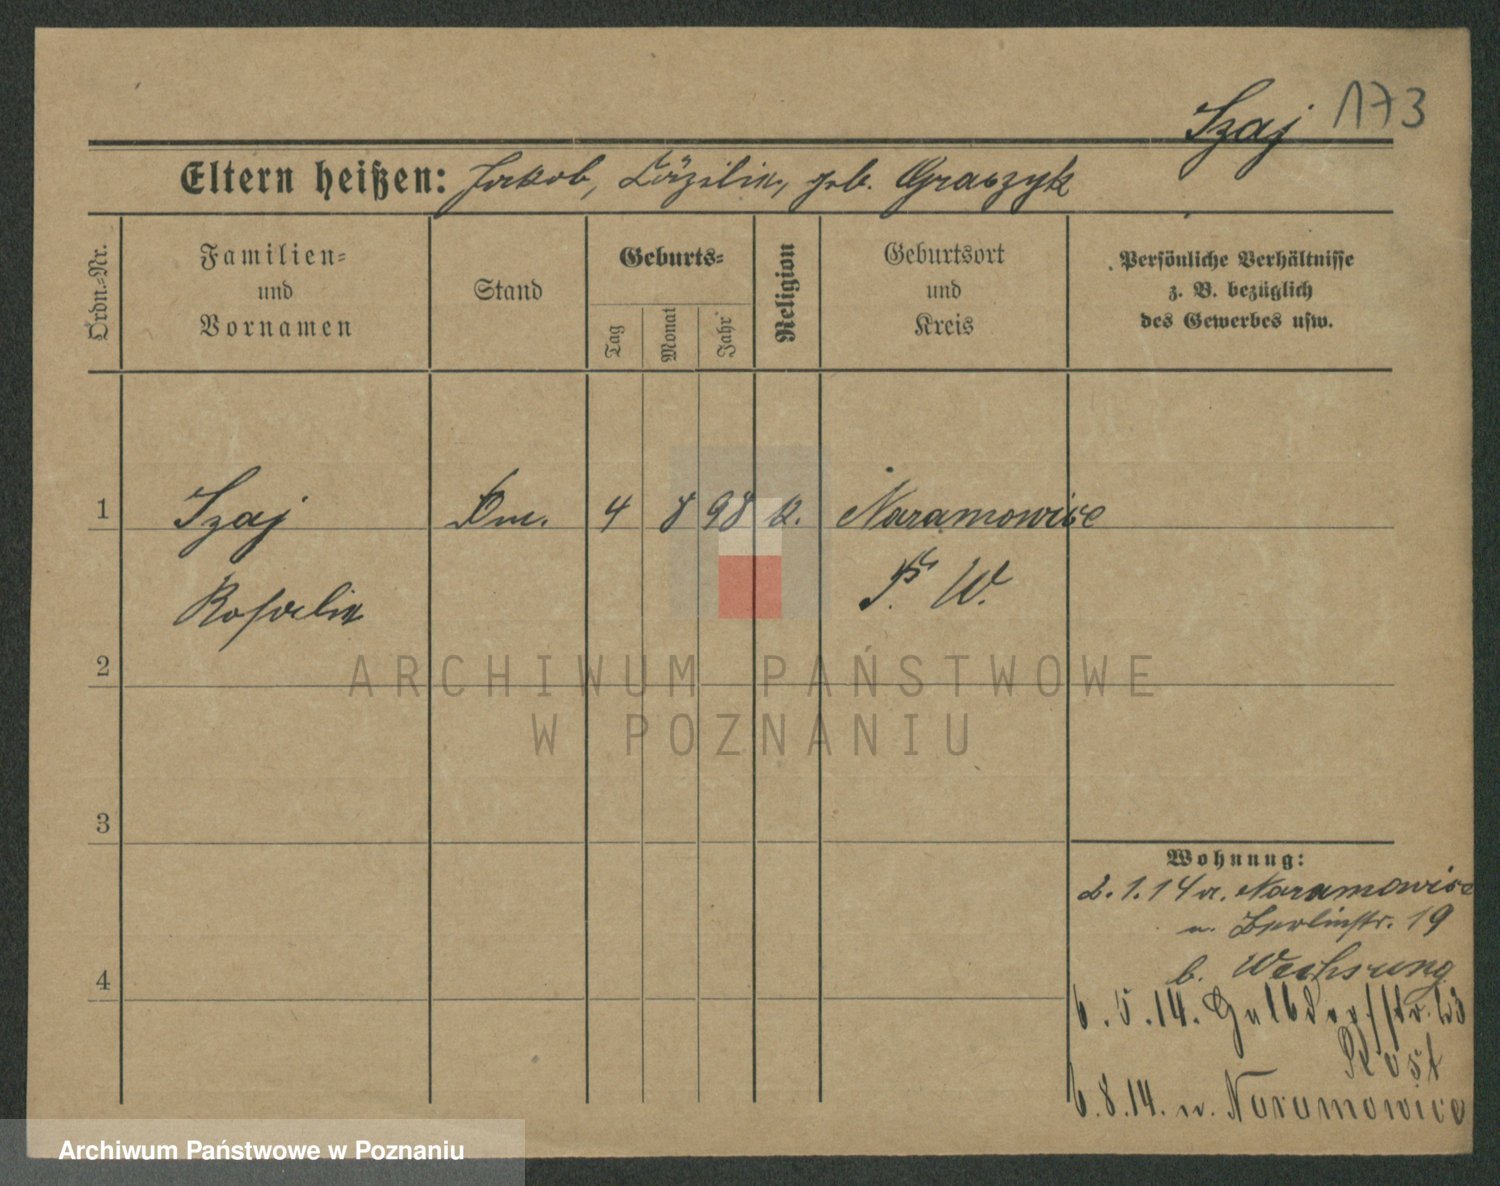 Szaj 173
Eltern heißen: Jakob, Cäzilie, geb. Graszyk
Ordn.-Nr.
Familien-
und
Vornamen
Stand
Geburts-
Tag
Monat
Jahr
Religion
Geburtsort
und
Kreis
Persönliche Verhältnisse
z. B. bezüglich
des Gewerbes usw.
1 Szaj Dm. 4 8 98 k. Naramowice
Rosalie P. W.
2
3
4
Wohnung:
2. 1. 14 v. Naramowice
n. Berlinstr. 19
b. Wechsung
6. 5. 14.
Kost
6. 8. 14. n. Naramowice
ARCHIWUM PAŃSTWOWE
W POZNANIU
Archiwum Państwowe w Poznaniu